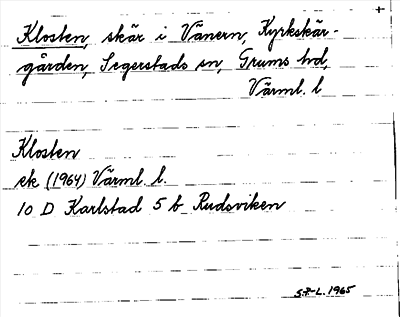 +
Klosten, skär i Vänern, Kyrkskär-
gården, Segerstads sn, Grums hd,
Värml. l
Klosten
ek (1964) Värml. l.
10 D Karlstad 5 b Rudsviken
S.F-L. 1965